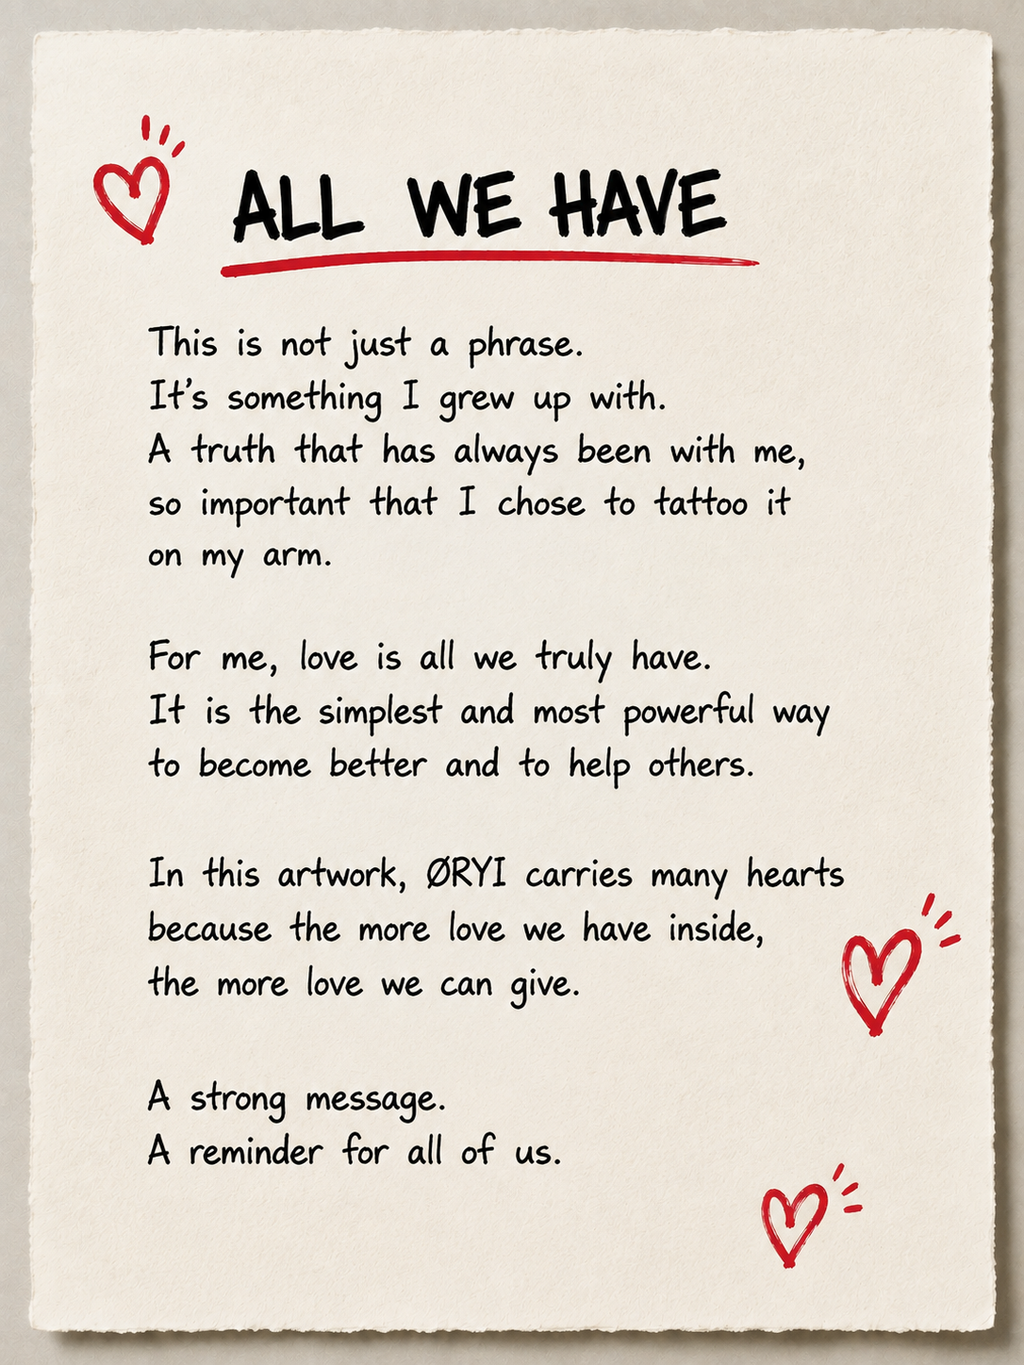 ALL WE HAVE
This is not just a phrase.
It's something I grew up with.
A truth that has always been with me,
so important that I chose to tattoo it
on my arm.
For me, love is all we truly have.
It is the simplest and most powerful way
to become better and to help others.
In this artwork, ØRYI carries many hearts
because the more love we have inside,
the more love we can give.
A strong message.
A reminder for all of us.